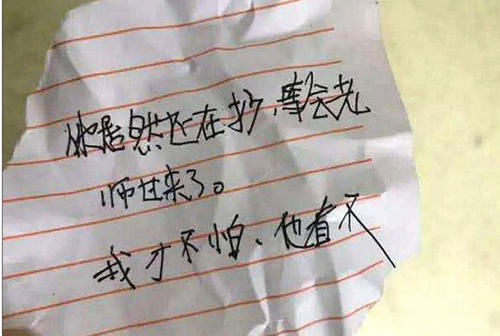 你居然还在抄,等会老
师过来了。
我才不怕、他看不